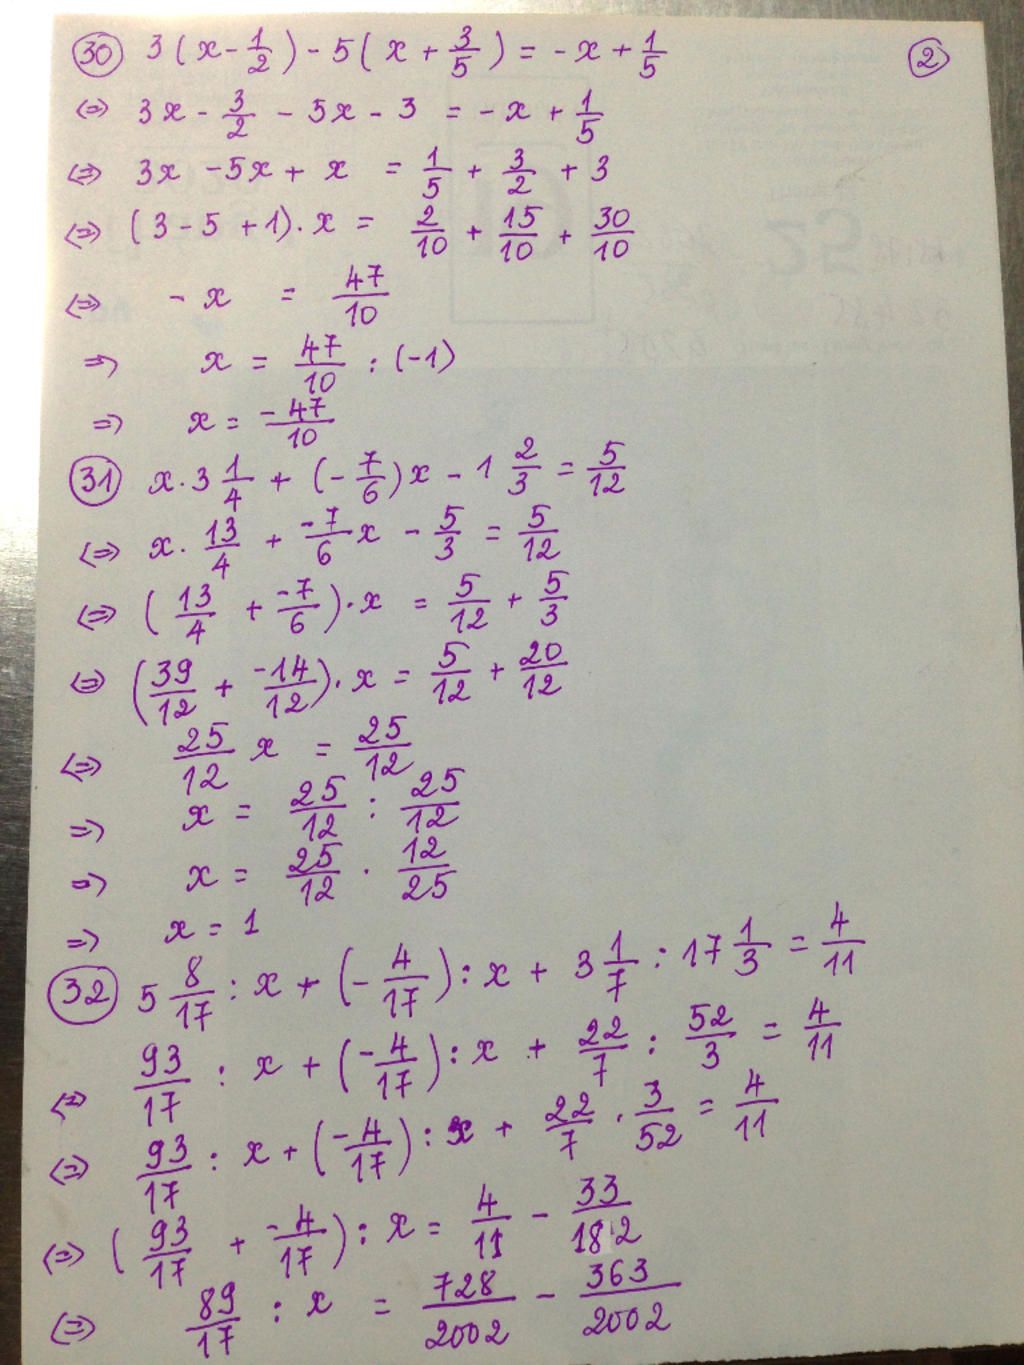 30 3(x - 1/2) - 5(x + 3/5) = -x + 1/5
2
⇔ 3x - 3/2 - 5x - 3 = -x + 1/5
⇔ 3x - 5x + x = 1/5 + 3/2 + 3
⇔ (3 - 5 + 1) · x = 2/10 + 15/10 + 30/10
⇔ - x = 47/10
⇒ x = 47/10 : (-1)
⇒ x = -47/10
31 x · 3 1/4 + (-7/6)x - 1 2/3 = 5/12
⇔ x · 13/4 + -7/6 x - 5/3 = 5/12
⇔ (13/4 + -7/6) · x = 5/12 + 5/3
⇔ (39/12 + -14/12) · x = 5/12 + 20/12
⇔ 25/12 x = 25/12
⇒ x = 25/12 : 25/12
⇒ x = 25/12 · 12/25
⇒ x = 1
32 5 8/17 : x + (-4/17) : x + 3 1/7 : 17 1/3 = 4/11
⇔ 93/17 : x + (-4/17) : x + 22/7 : 52/3 = 4/11
⇔ 93/17 : x + (-4/17) : x + 22/7 · 3/52 = 4/11
⇔ (93/17 + -4/17) : x = 4/11 - 33/182
⇔ 89/17 : x = 728/2002 - 363/2002